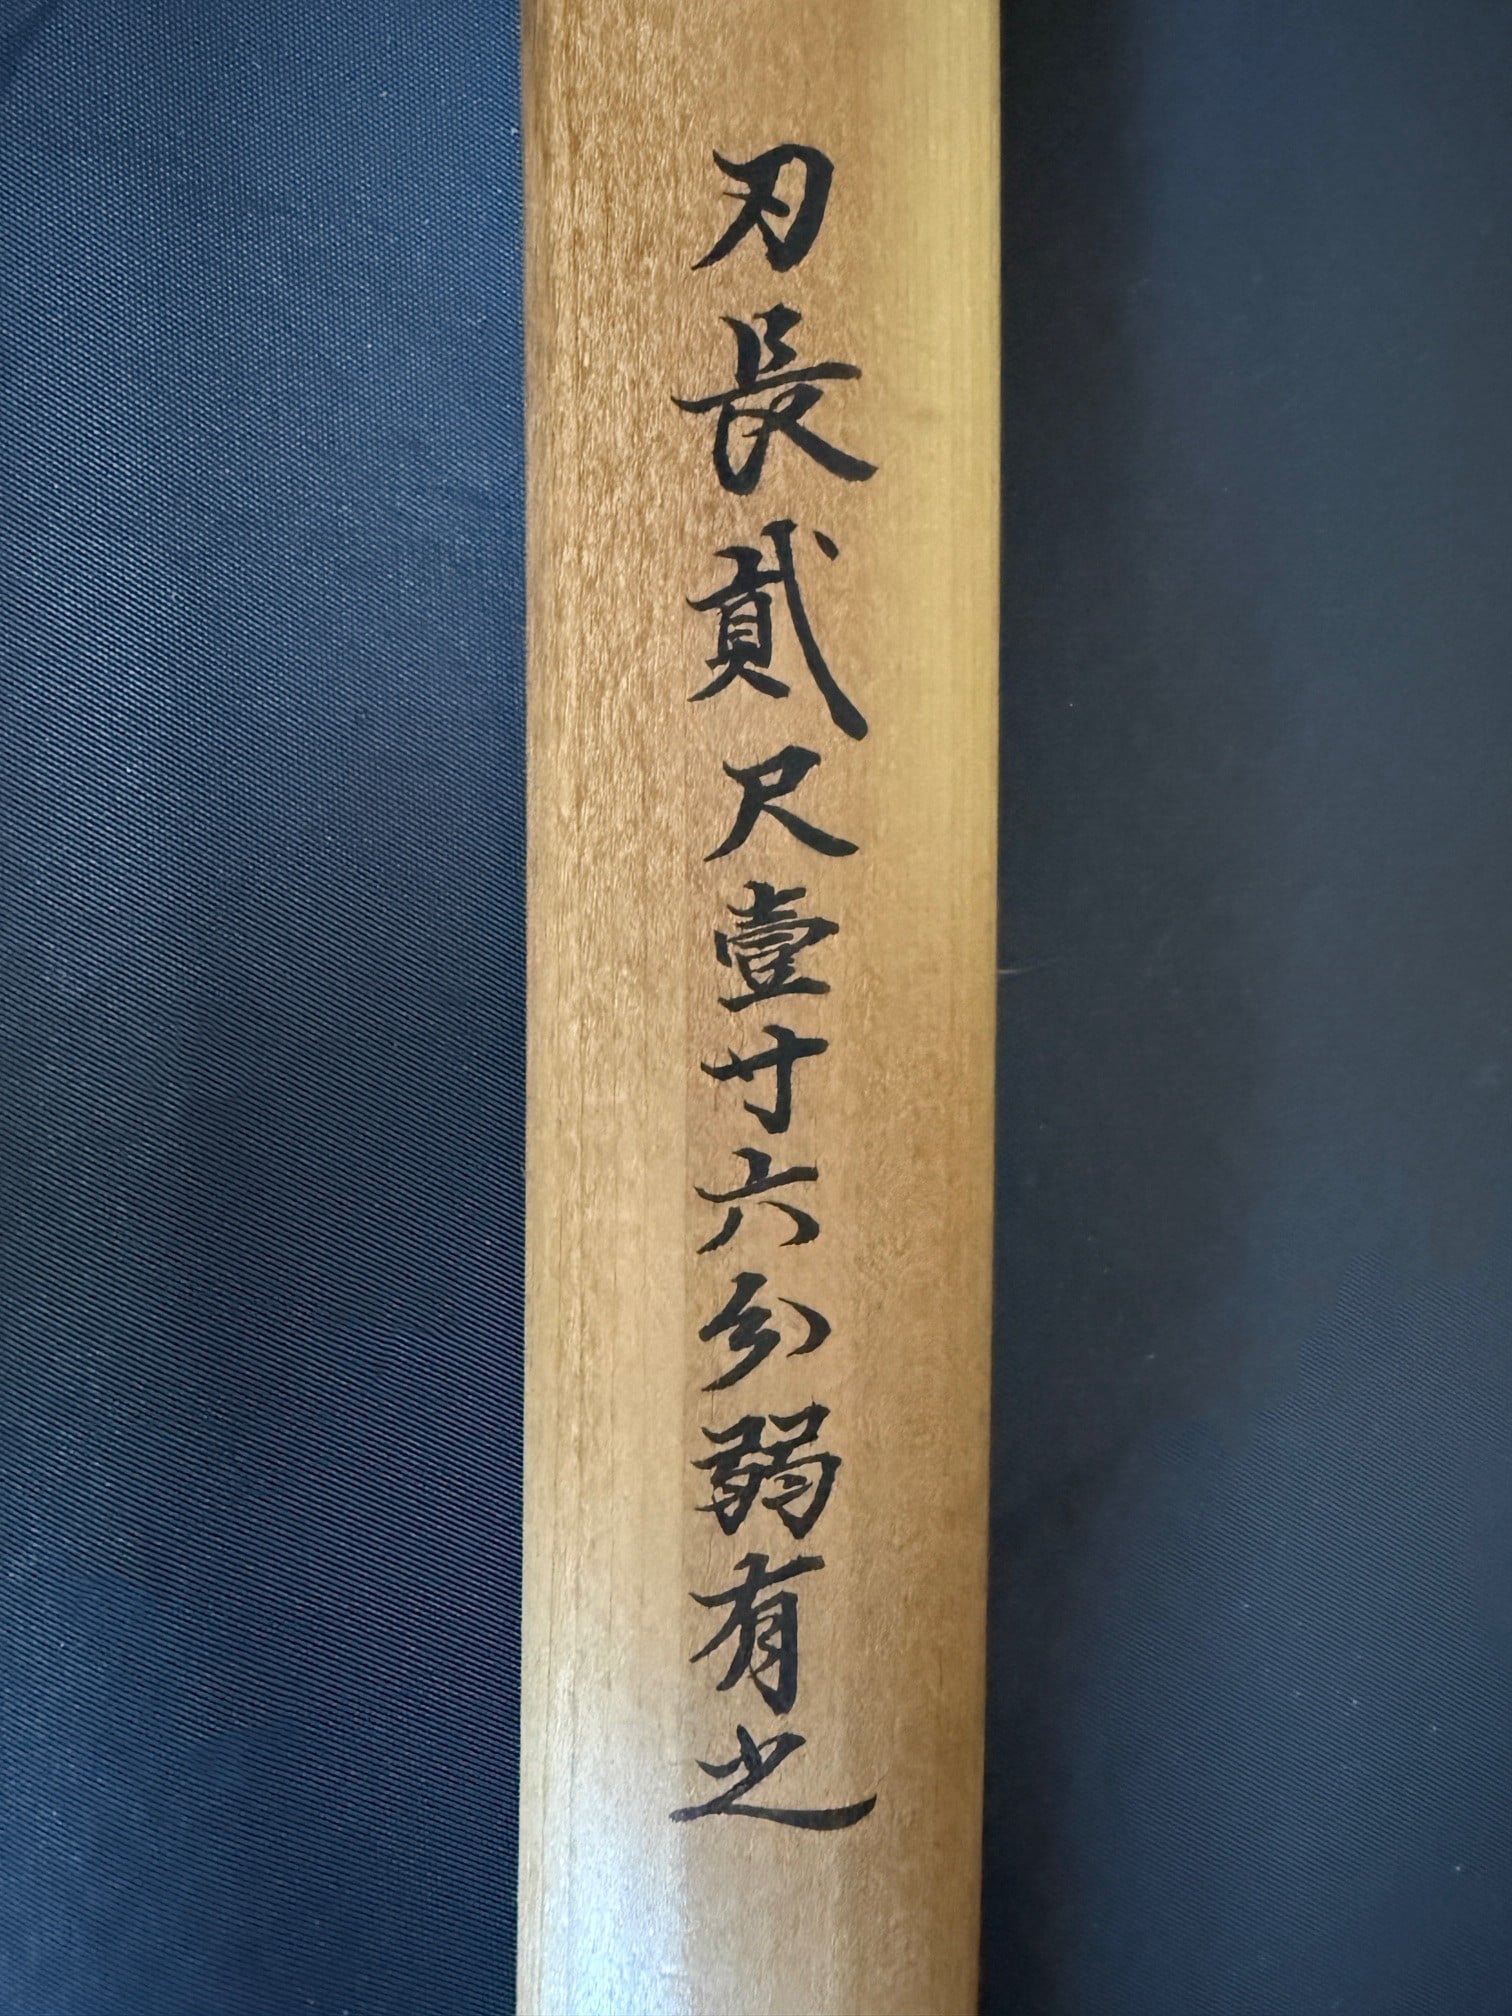 刃長貳尺壹寸六分弱有之